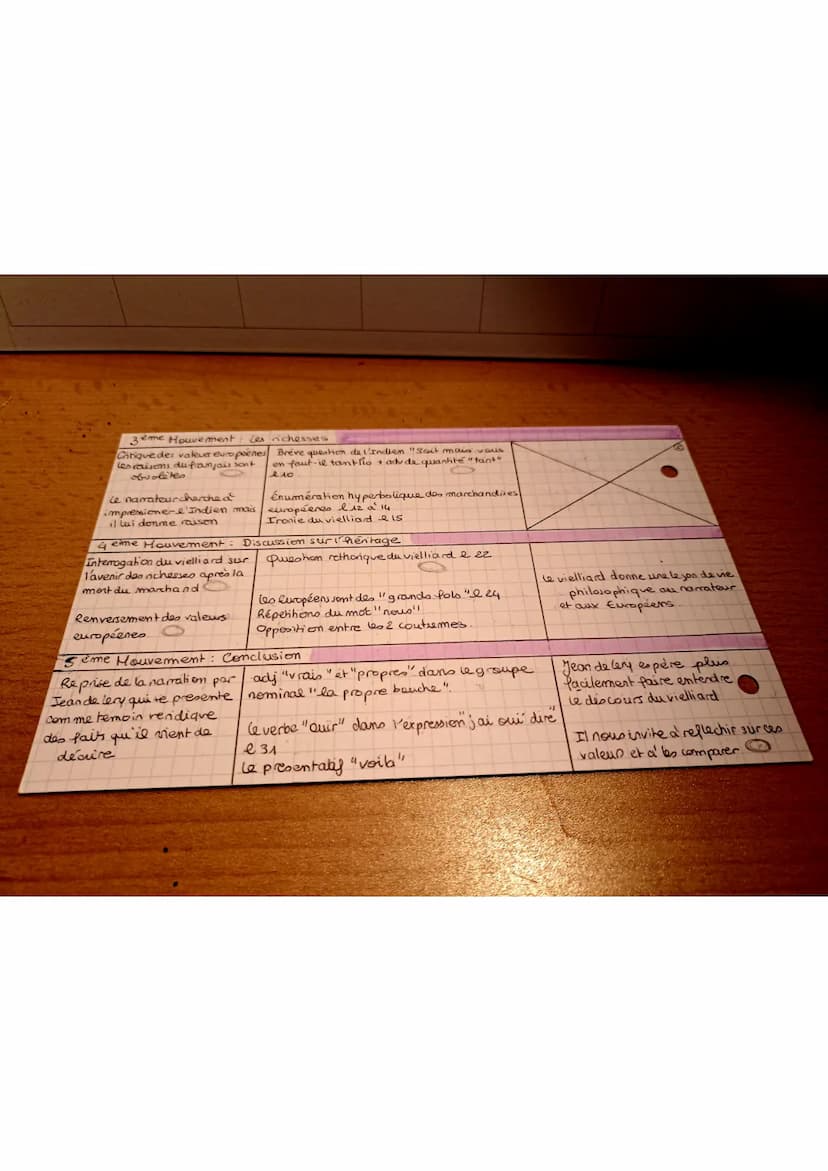 3ème Mouvement : Les richesses
Critique des valeur européenes
les raisons du français sont
obsolètes
Le narrateur cherche à
impressioner l'Indien mais
il lui donne raison
Brève question de l'Indien "Soit mais vous
en faut-il tant ? l10 + adv de quantité "tant"
l10
Énumération hyperbolique des marchandises
européenes l12 à 14
Ironie du vielliard l15
4ème Mouvement : Discussion sur l'héritage
Interrogation du vielliard sur
l'avenir des richesses après la
mort du marchand
Renversement des valeurs
européenes
Question rethorique du vielliard l22
Les Européen sont des "grands fols" l24
Répétitions du mot "nous"
Opposition entre les 2 coutumes.
Le vielliard donne une leçon de vie
philosophique au narrateur
et aux Européens.
5ème Mouvement : Conclusion
Reprise de la narration par
Jean de Lery qui se présente
comme temoin rendique
des faits qu'il vient de
décrire
adj "vrais" et "propres" dans le groupe
nominal "la propre bouche".
Le verbe "ouïr" dans l'expression "j'ai ouï dire"
l31
Le présentatif "voilà"
Jean de Lery espère plus
facilement faire entendre
le discours du vielliard
Il nous invite à reflechir sur ces
valeurs et à les comparer